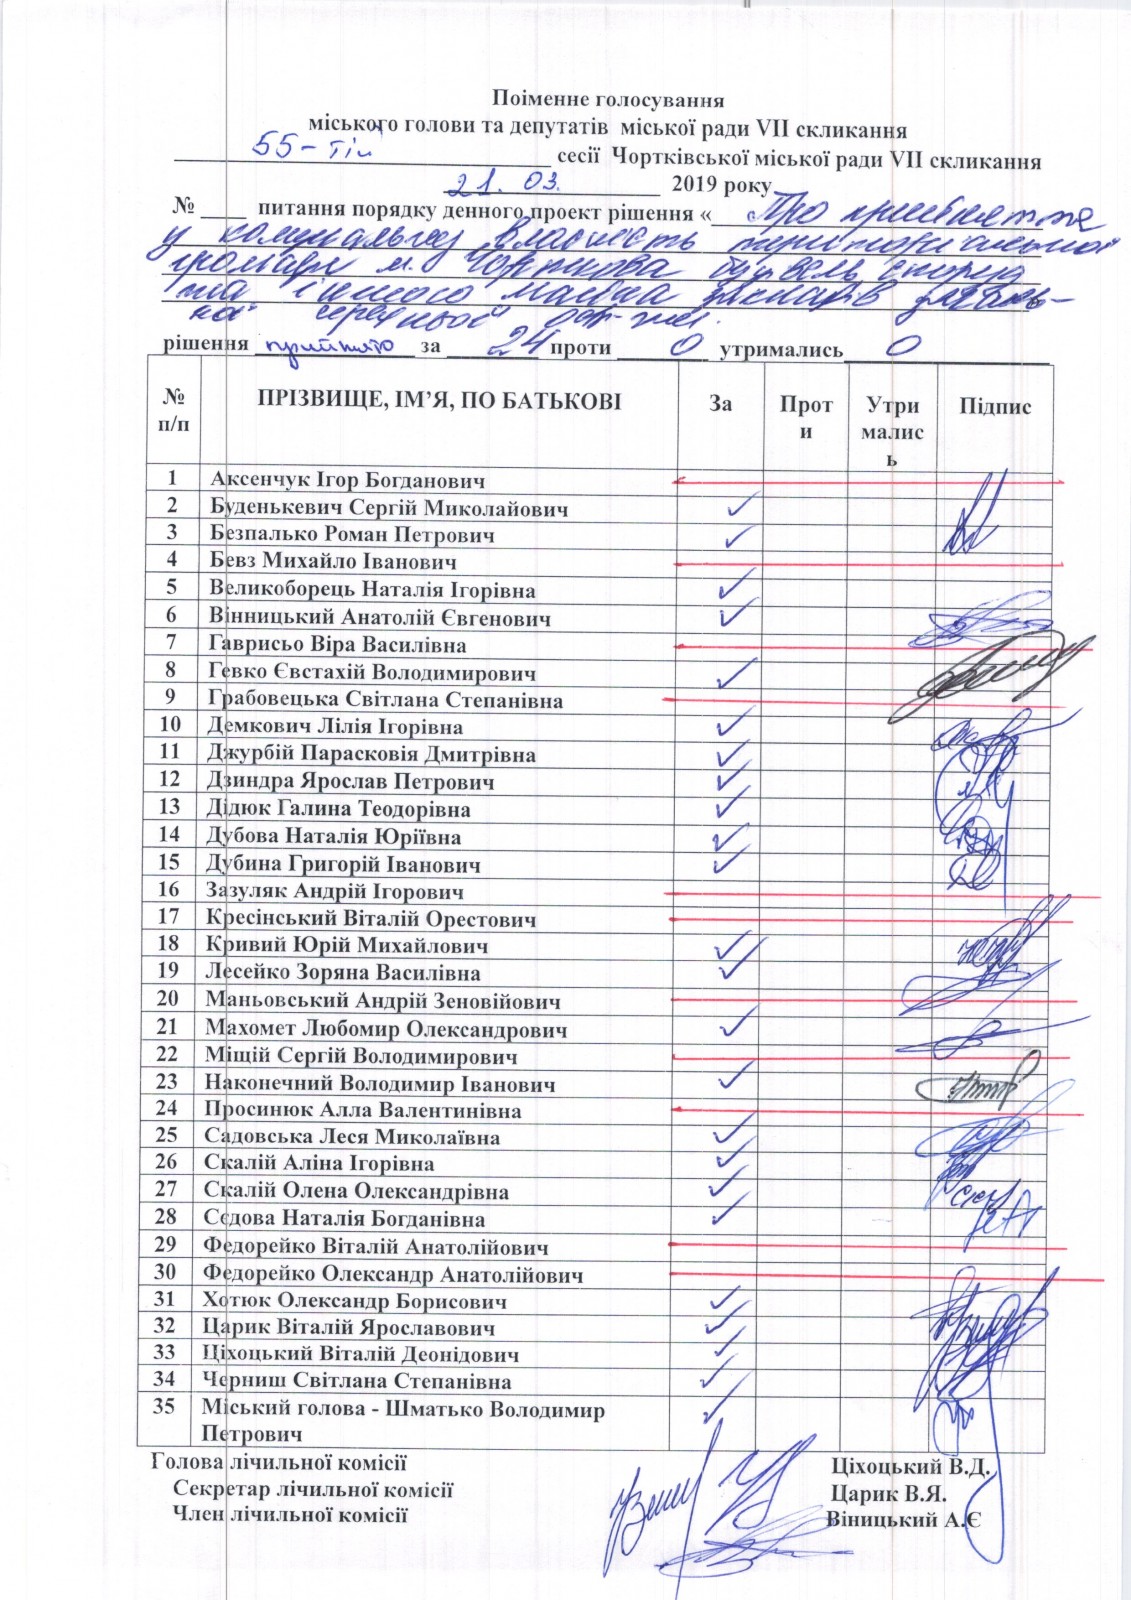 Поіменне голосування
міського голови та депутатів міської ради VII скликання
55-тій сесії Чортківської міської ради VII скликання
21.03. 2019 року
№ ____ питання порядку денного проект рішення « Про прийняття
у комунальну власність територіальної
громади м. Чорткова будівель, споруд
та іншого майна закладів загаль-
ної середньої освіти.
рішення прийнято за 24 проти 0 утримались 0
№ п/п ПРІЗВИЩЕ, ІМ’Я, ПО БАТЬКОВІ За Проти Утримались Підпис
1 Аксенчук Ігор Богданович
2 Буденькевич Сергій Миколайович
3 Безпалько Роман Петрович
4 Бевз Михайло Іванович
5 Великоборець Наталія Ігорівна
6 Вінницький Анатолій Євгенович
7 Гаврисьо Віра Василівна
8 Гевко Євстахій Володимирович
9 Грабовецька Світлана Степанівна
10 Демкович Лілія Ігорівна
11 Джурбій Парасковія Дмитрівна
12 Дзиндра Ярослав Петрович
13 Дідюк Галина Теодорівна
14 Дубова Наталія Юріївна
15 Дубина Григорій Іванович
16 Зазуляк Андрій Ігорович
17 Кресінський Віталій Орестович
18 Кривий Юрій Михайлович
19 Лесейко Зоряна Василівна
20 Маньовський Андрій Зеновійович
21 Махомет Любомир Олександрович
22 Міщій Сергій Володимирович
23 Наконечний Володимир Іванович
24 Просинюк Алла Валентинівна
25 Садовська Леся Миколаївна
26 Скалій Аліна Ігорівна
27 Скалій Олена Олександрівна
28 Сєдова Наталія Богданівна
29 Федорейко Віталій Анатолійович
30 Федорейко Олександр Анатолійович
31 Хотюк Олександр Борисович
32 Царик Віталій Ярославович
33 Ціхоцький Віталій Деонідович
34 Черниш Світлана Степанівна
35 Міський голова - Шматько Володимир
Петрович
Голова лічильної комісії Ціхоцький В.Д.
Секретар лічильної комісії Царик В.Я.
Член лічильної комісії Віницький А.Є